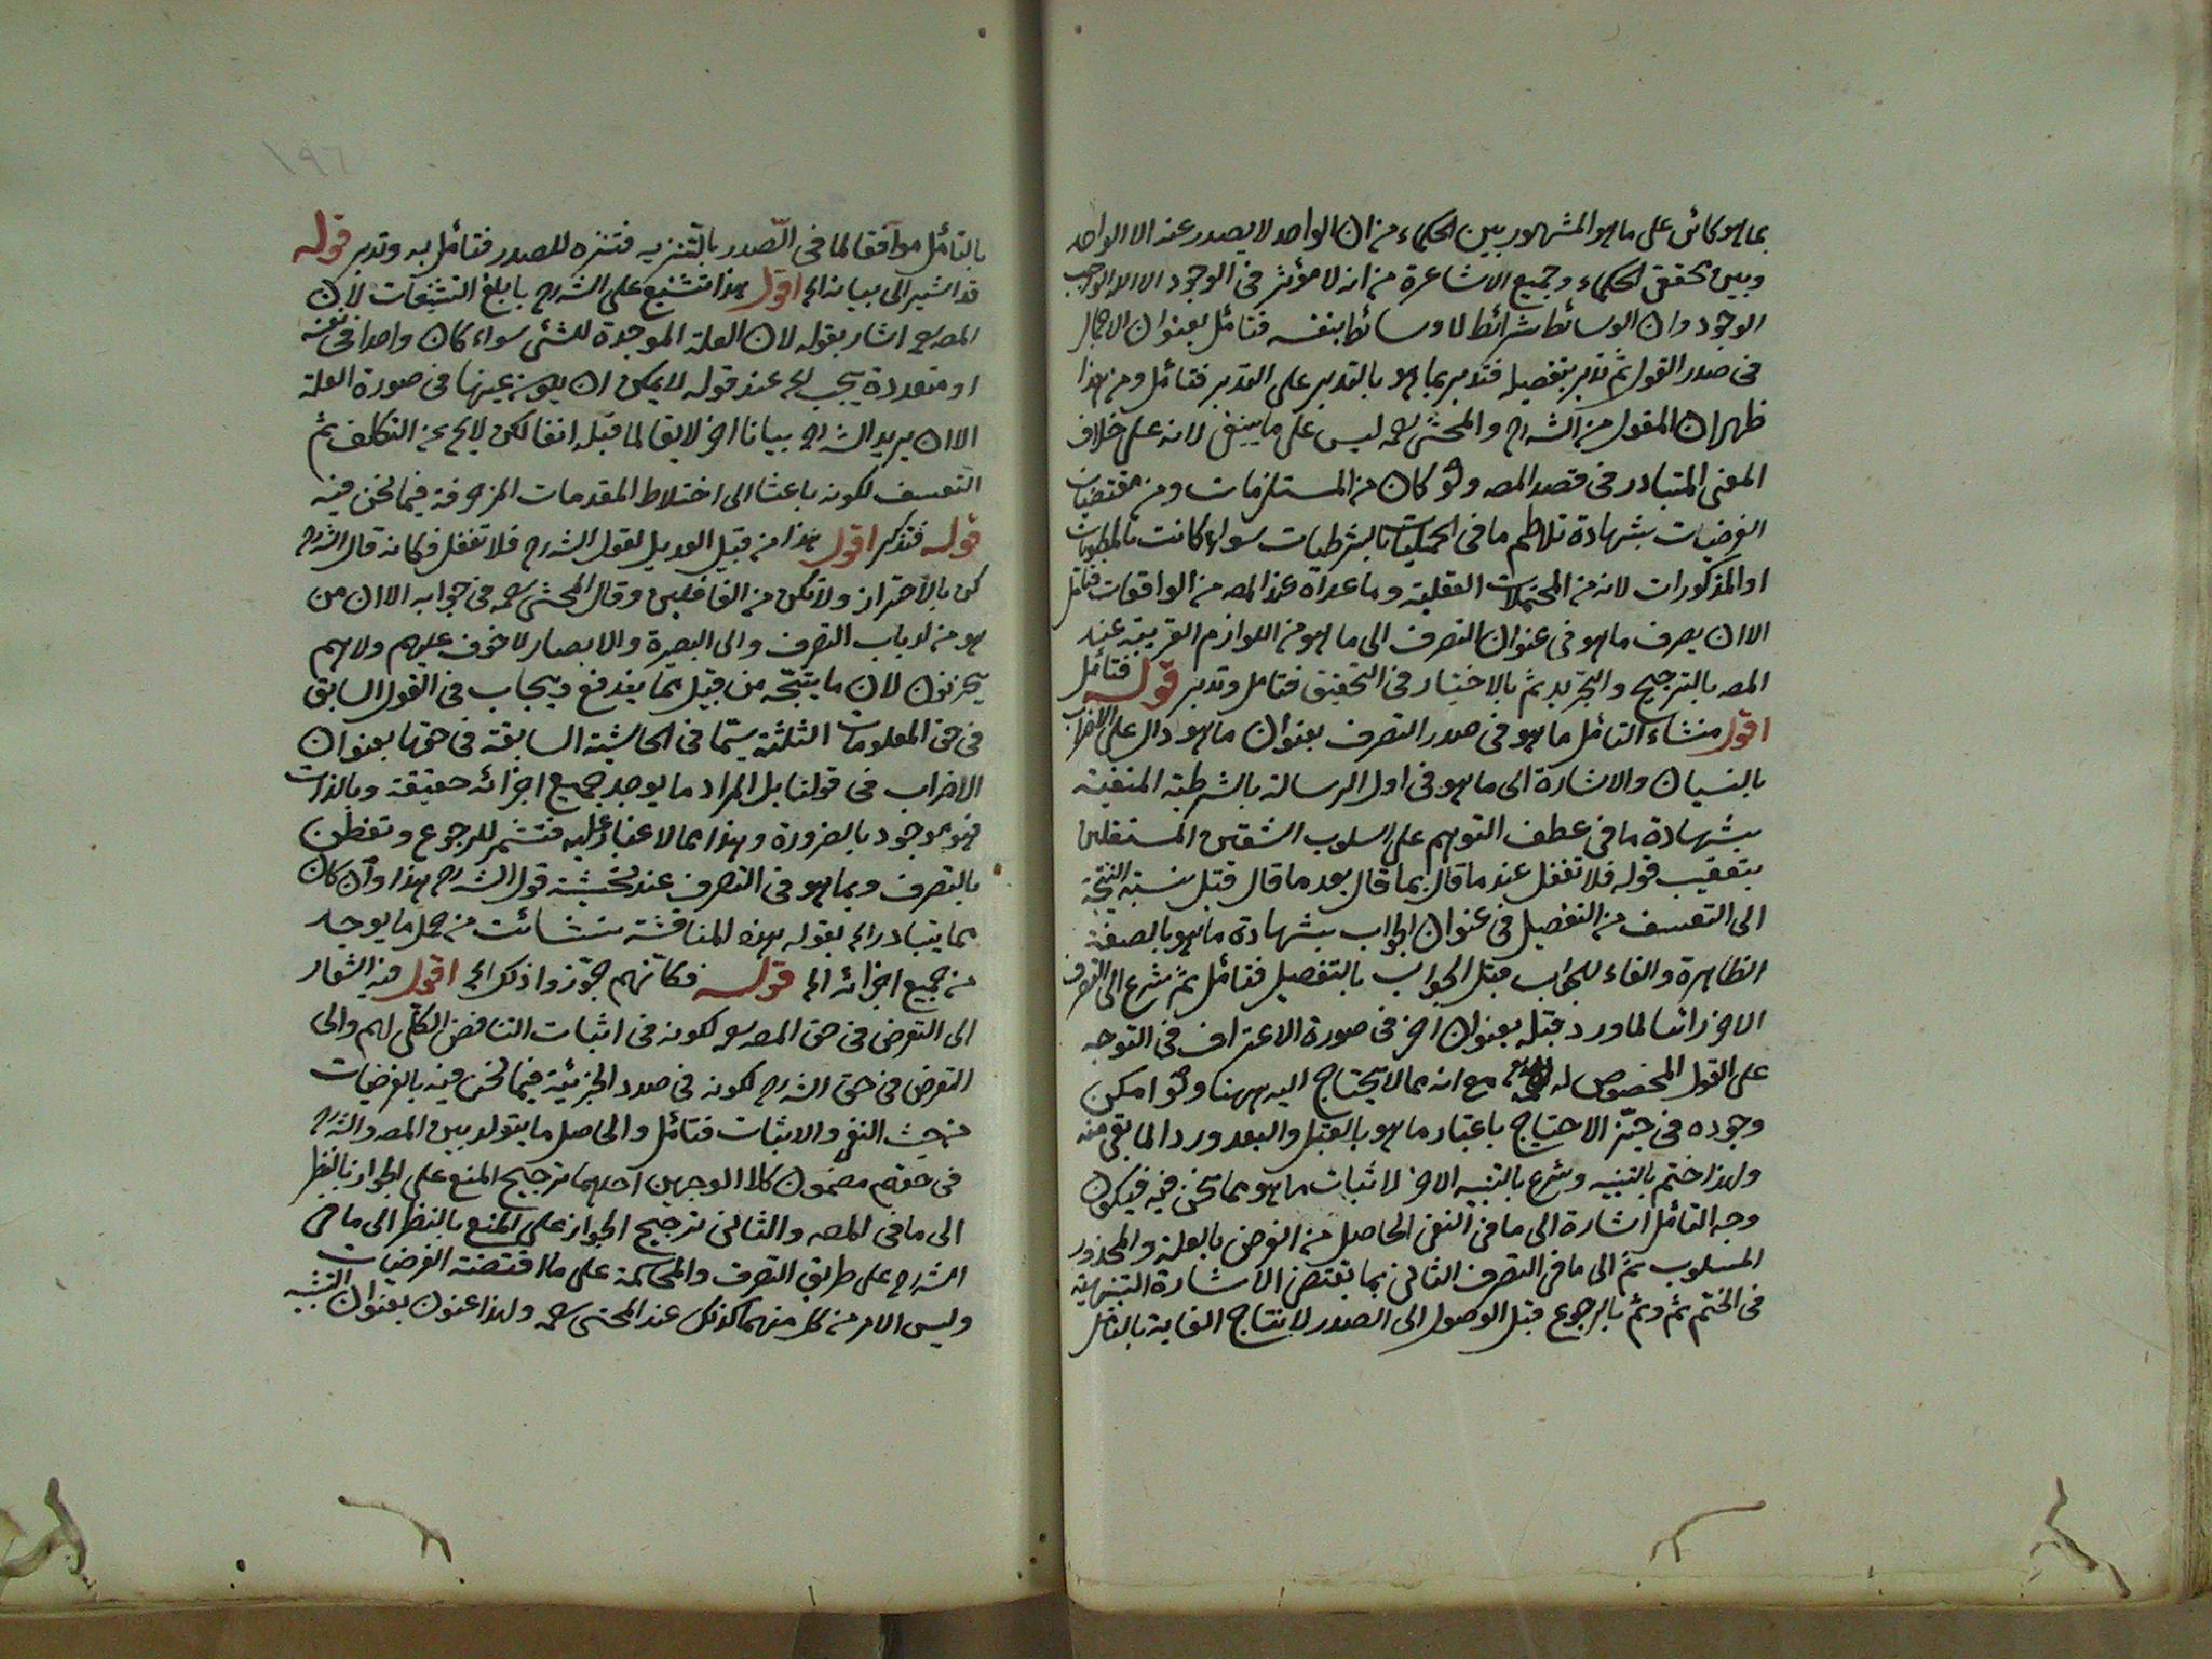 بما هو كائن على ما هو المشهور بين الحكماء من ان الواحد لا يصدر عنه الا الواحد
وبين تحقق الحكماء وجميع الاشاعرة من انه لا مؤثر فى الوجود الا الواجب
الوجود وان الوسائط شرائط لا وسائط بنفسه فتأمل بعنوان الاجمال
فى صدر القول ثم تدبر بتفصيل فتدبر بما هو بالتدبر على التدبر فتأمل ومن هذا
ظهر ان المقول من الشارح والمحشى رحمه ليس على ما ينبغى لانه على خلاف
المعنى المتبادر فى قصد المصـ ولو كان من المستلزمات ومن مقتضيات
الفرضيات بشهادة تلاطم ما فى الحمليات بالشرطيات سواء كانت بالمطويات
او المذكورات لانه من المحتملات العقلية وما عداه عند المصـ من الواقعات فتأمل
الا ان يصرف ما هو فى عنوان التصرف الى ما هو من اللوازم القريبة عند
المصـ بالترجيح والتجريد ثم بالاختيار فى التحقيق فتأمل وتدبر قوله فتأمل
اقول منشاء التأمل ما هو فى صدر التصرف بعنوان ما هو دال على الاضراب
بالنسيان والاشارة الى ما هو فى اول الرسالة بالشرطية المنفية
بشهادة ما فى عطف التوهم على اسلوب الشقين المستقلين
بتعقيب قوله فلا تغفل عند ما قال بما قال بعد ما قال قبل نسبة النتيجة
الى التعسف من التفصيل فى عنوان الجواب بشهادة ما هو بالصفة
الظاهرة والفاء للجواب قبل الجواب بالتفصيل فتأمل ثم شرع الى التصرف
الاخر رائسا لما ورد قبله بعنوان اخر فى صورة الاعتراف فى التوجه
على القول المخصوص له مع انه مما لا يحتاج اليه ههنا ولو امكن
وجوده فى حيّز الاحتياج باعتبار ما هو بالقبل والبعد وردا لما بقى منه
ولهذا ختم بالتنبيه وشرع بالتنبيه الاخر لاثبات ما هو مما نحن فيه فيكون
وجه التأمل اشارة الى ما فى النفى الحاصل من الفرض بالعلة والمحذور
المسلوب ثم الى ما فى التصرف الثانى بما تقتضى الاشارة التنبيهية
فى الختم ثم وثم بالرجوع قبل الوصول الى الصدر لانتاج الغاية بالتأمل
بالتأمل موافقا لما فى الصّدر بالتنزيه فتنزه للصدر فتأمل به وتدبر قوله
قد اشير الى بيانه الخ اقول هذا تشنيع على الشارح بابلغ التشنيعات لان
المصـ رح اشار بقوله لان العلة الموجدة للشئ سواء كان واحدا فى نفسه
او متعددة يجب الخ عند قوله لا يمكن ان يكون عينها فى صورة العلة
الا ان يريد الشارح بيانا اخر لايقا لما قبله انفا لكن لا يخ عن التكلف ثم
التعسف لكونه باعثا الى اختلاط المقدمات المزخرفة فيما نحن فيه
قوله فتذكر اقول هذا من قبيل العديل لقول الشارح فلا تغفل فكانه قال الشارح
كن بالاحتراز ولا تكن من الغافلين وقال المحشى رحمه فى جوابه الا ان من
هو من ارباب التصرف والى البصيرة والابصار لا خوف عليهم ولا هم
يحزنون لان ما يتّجه من قبيل بما يندفع ويجاب فى القول السابق
فى حق المعلومات الثلثة سيّما فى الحاشية السابقة فى حقها بعنوان
الاضراب فى قولنا بل المراد ما يوجد جميع اجزائه حقيقة وبالذات
فهو موجود بالضرورة وهذا مما لا غبار عليه فتشمر للرجوع وتفطن
بالتصرف وبما هو فى التصرف عند تحشية قول الشارح هذا وان كان
مما يتبادر الخ بقوله هذه المناقشة نشائت من حمل ما يوجد
من جميع اجزائه الخ قوله فكانهم جوّزوا ذلك الخ اقول فيه اشعار
الى التعرض فى حق المصـ رح لكونه فى اثبات التناقض الكلّى لهم والى
التعرض فى حق الشارح لكونه فى صدد الجزئية فيما نحن فيه بالفرضيات
من حيث النفى والاثبات فتأمل والحاصل ما يتولد بين المصـ والشارح
فى حقهم مضمون كلا الوجهين احدهما ترجيح المنع على الجواز بالنظر
الى ما فى المصـ والثانى ترجيح الجواز على المنع بالنظر الى ما فى
الشارح على طريق التصرف والمحاكمة على ما اقتضته الفرضيات
وليس الامر من كل منهما كذلك عند المحشى رحمه ولهذا عنون بعنوان التنبيه